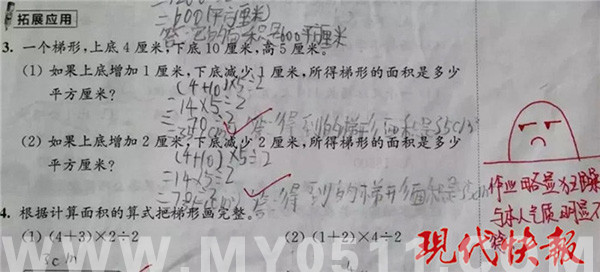 =600(平方厘米)
拓展应用
3. 一个梯形,上底4厘米,下底10厘米,高5厘米。
(1) 如果上底增加1厘米,下底减少1厘米,所得梯形的面积是多少
平方厘米?
(4+10)×5÷2
=14×5÷2
=70÷2
答:得到的梯形面积是35cm²
(2) 如果上底增加2厘米,下底减少2厘米,所得梯形的面积是多少
平方厘米?
(4+10)×5÷2
=14×5÷2
=70÷2
答:得到的梯形面积是
4. 根据计算面积的算式把梯形画完整。
(1) (4+3)×2÷2
(2) (1+2)×4÷2
作业略显
与本人气质明显不
WWW.MY0511.COM
现代快报